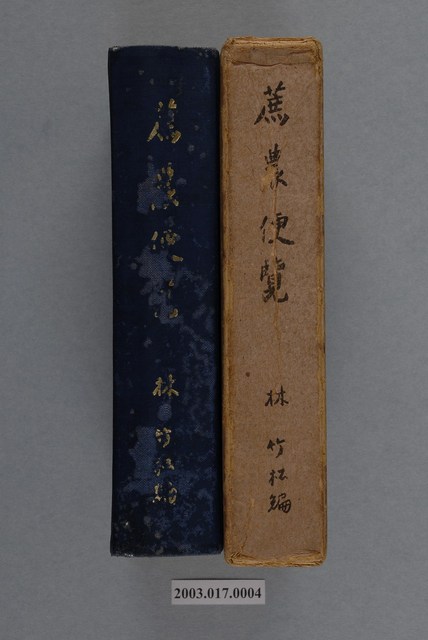 蕉農便覽
林竹松編
蕉農便
林竹松編
2003.017.0004